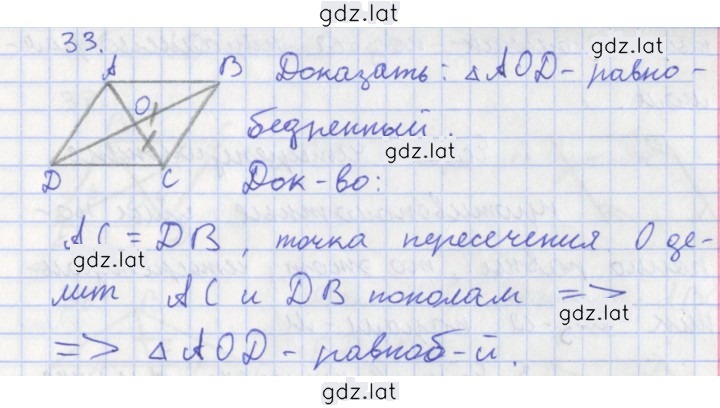 gdz.lat
33.
A B Доказать: △AOD - равно-
gdz.lat
O
бедренный.
gdz.lat
D C Док-во:
AC = DB, точка пересечения O де-
gdz.lat
лит AC и DB пополам =>
gdz.lat
=> △AOD - равноб-й.
gdz.lat